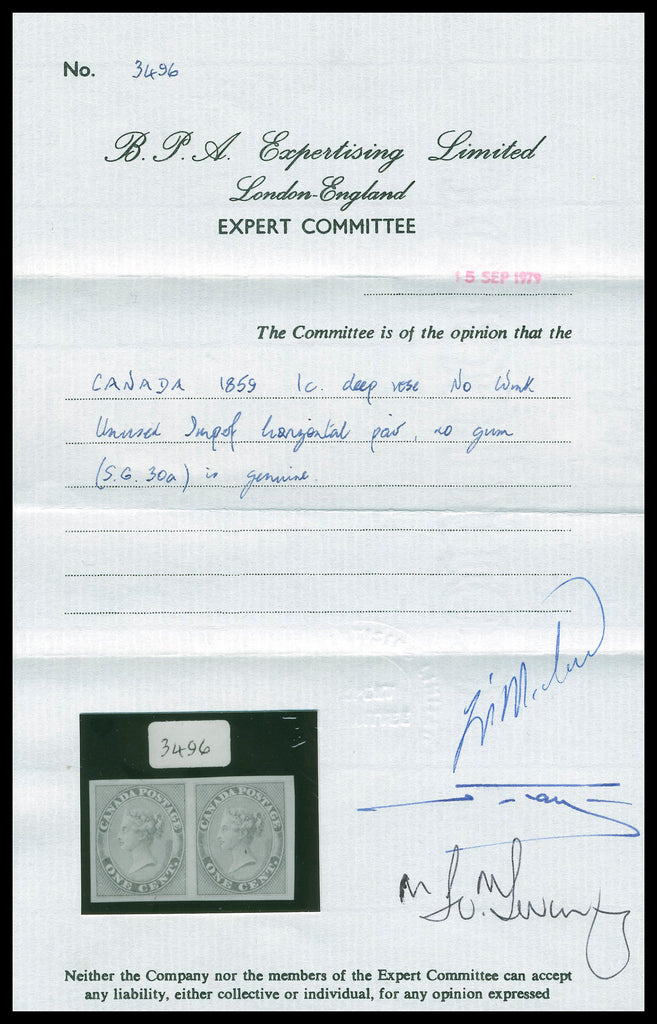 No. 3496
B. P. A. Expertising Limited
London-England
EXPERT COMMITTEE
15 SEP 1979
The Committee is of the opinion that the
CANADA 1859 1c. deep rose No Wmk
Unused Imperf horizontal pair, no gum
(S.G. 30a) is genuine.
3496
CANADA POSTAGE CANADA POSTAGE
ONE CENT. ONE CENT.
Neither the Company nor the members of the Expert Committee can accept
any liability, either collective or individual, for any opinion expressed